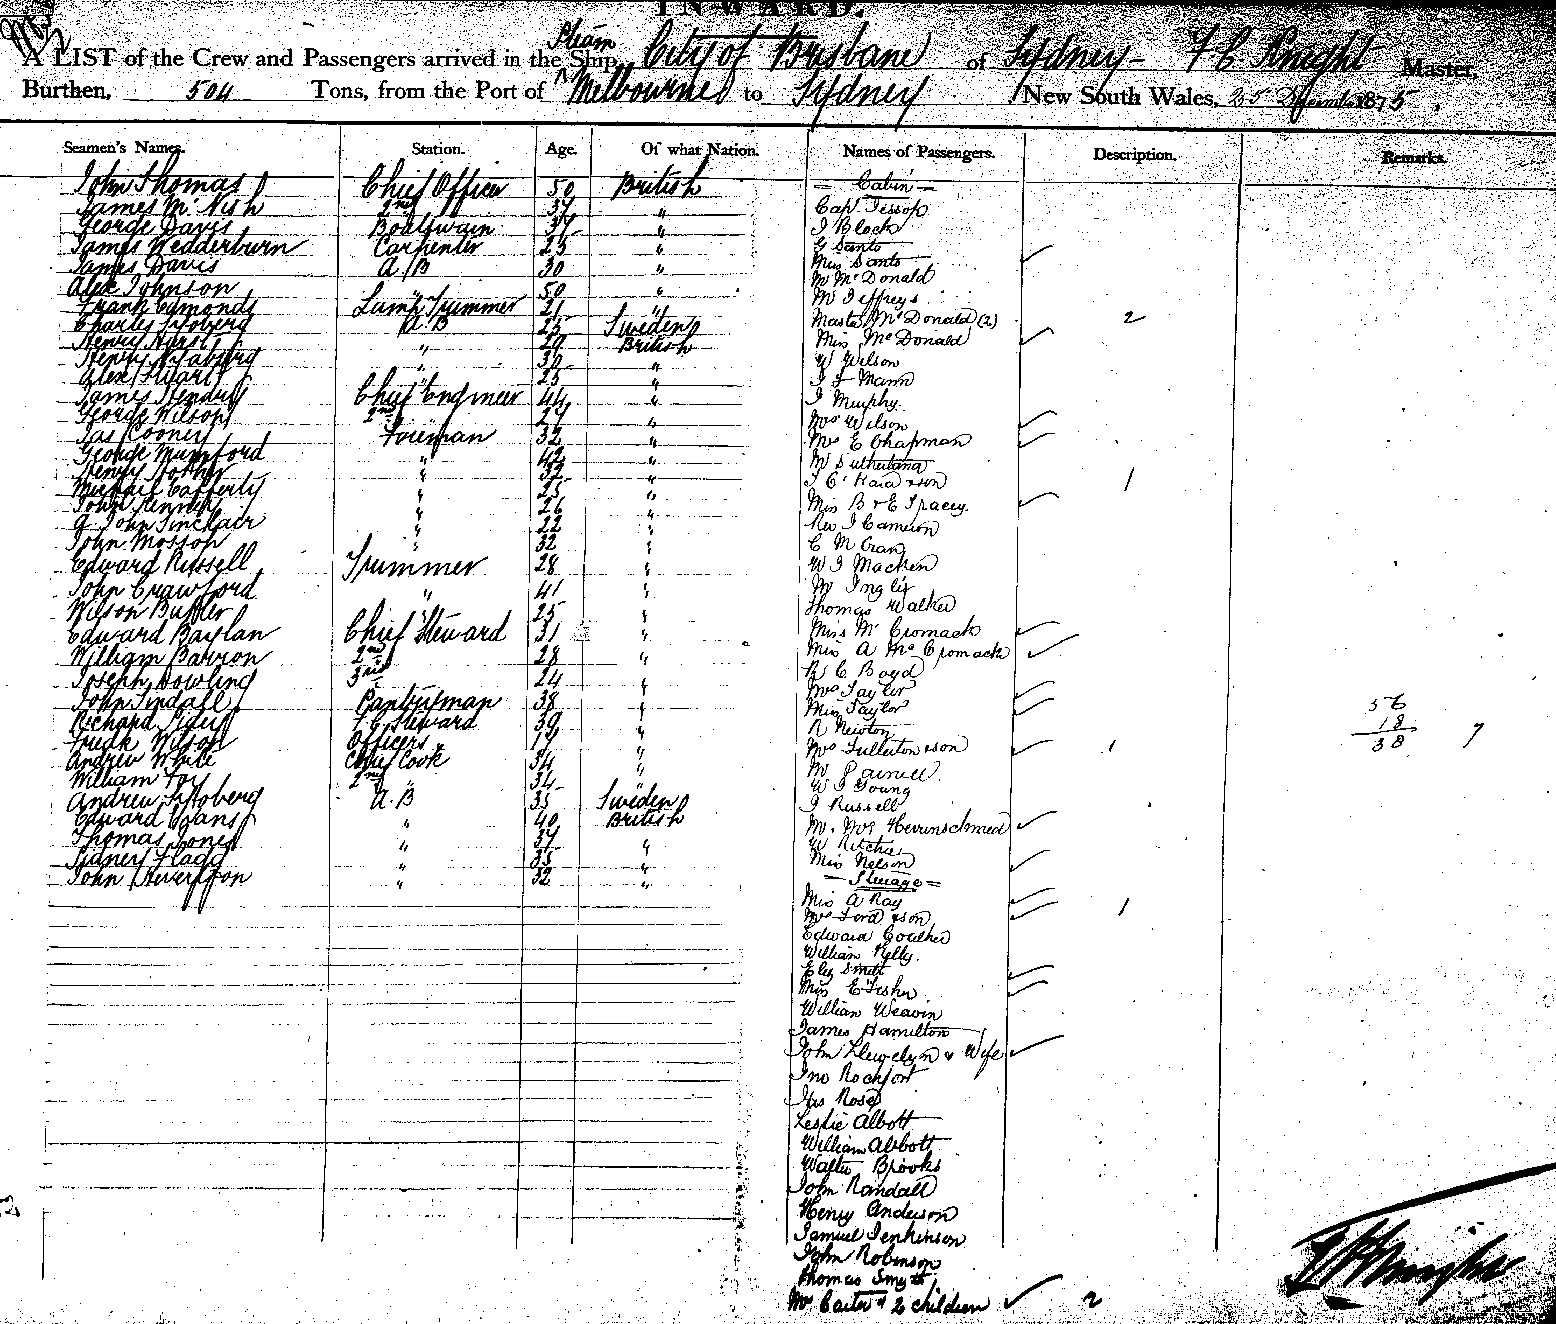 INWARD.
A LIST of the Crew and Passengers arrived in the Steam Ship City of Brisbane of Sydney - Master,
Burthen, 504 Tons, from the Port of Melbourne to Sydney New South Wales, 25 December 1875,
Seamen's Names. Station. Age. Of what Nation. Names of Passengers. Description. Remarks.
John Thomas Chief Officer 50 British
James McNish 2nd 34 "
George Davis Boatswain 37 "
James Wedderburn Carpenter 25 "
James Davis A/B 30 "
Alex Johnson 50 "
Frank Edmonds Lamp Trimmer 21 "
Charles A.B 25 Sweden
Henry " 29 British
Henry 30 "
Alex Stuart 25 "
James Hendry Chief Engineer 44 "
George Wilson 2nd 27 "
Jas Cooney Foreman 32 "
George Mumford " 42 "
Henry " 32 "
Michael Cafferty " 25 "
John " 26 "
John Sinclair " 22 "
John Mosson " 32 "
Edward Russell Trimmer 28 "
John Crawford " 41 "
Wilson Butler " 25 "
Edward Baylan Chief Steward 31 "
William Barron 2nd 28 "
Joseph Dowling 3rd 24 "
John Tindall Pantryman 38 "
Richard Steward 39 "
Fredk Wilson Officers " 19 "
Andrew White Chief Cook 34 "
William Foy 2nd " 34 "
Andrew A.B 35 Sweden
Edward Evans " 40 British
Thomas Jones " 37 "
Sidney Flagg " 35 "
John " 32 "
- Cabin -
Capt Jessop
J Block
G Santo
Miss Santo
Mr McDonald
Mr Jeffreys
Master McDonald (2) 2
Miss McDonald
W Wilson
J F Mann
J Murphy
Mrs Wilson
Mrs E Chapman
Mr Sutherland
J C & son 1
Miss B & E Tracey
Rev J Cameron
C M Cran
W J Macken
Mr Inglis
Thomas Walker
Miss McCromack
Miss A McCromack
R C Boyd
Mrs Taylor
Miss Taylor
R Newton
Mrs Fullerton & son 1
Mr
W J Young
J Russell
Mr & Mrs
W Ritchie
Miss Nelson
- Steerage -
Miss A Ray
Mrs Ford & son 1
Edward
William Kelly
Eliz Smith
Miss E Fisher
William Weavin
James Hamilton
John Llewelyn & Wife
Jno Rochfort
Jas Rose
Leslie Abbott
William Abbott
Walter Brooks
John Randall
Henry Anderson
Samuel Jenkinson
John Robinson
Thomas Smyth
Mrs Carter & 2 children 2
56
18
38 7